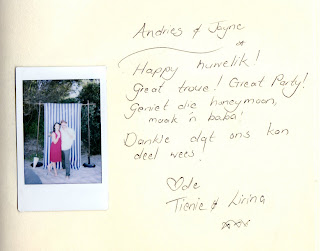 Andries & Jayne
Happy huwelik!
Great troue! Great Party!
Geniet die honeymoon,
maak 'n baba!
Dankie dat ons kon
deel wees.
♡de
Tienie & Lirina
xxx